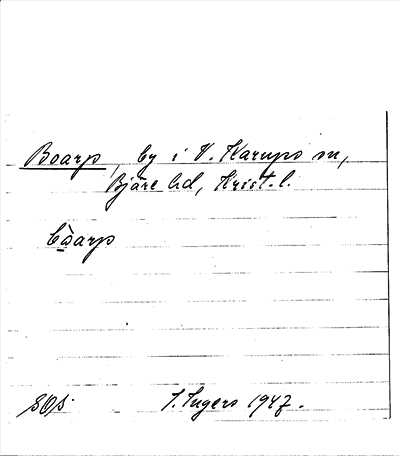 Boarp, by i V. Karups sn,
Bjäre hd, Krist. l.
bòarp
SOS
I. Ingers 1947.